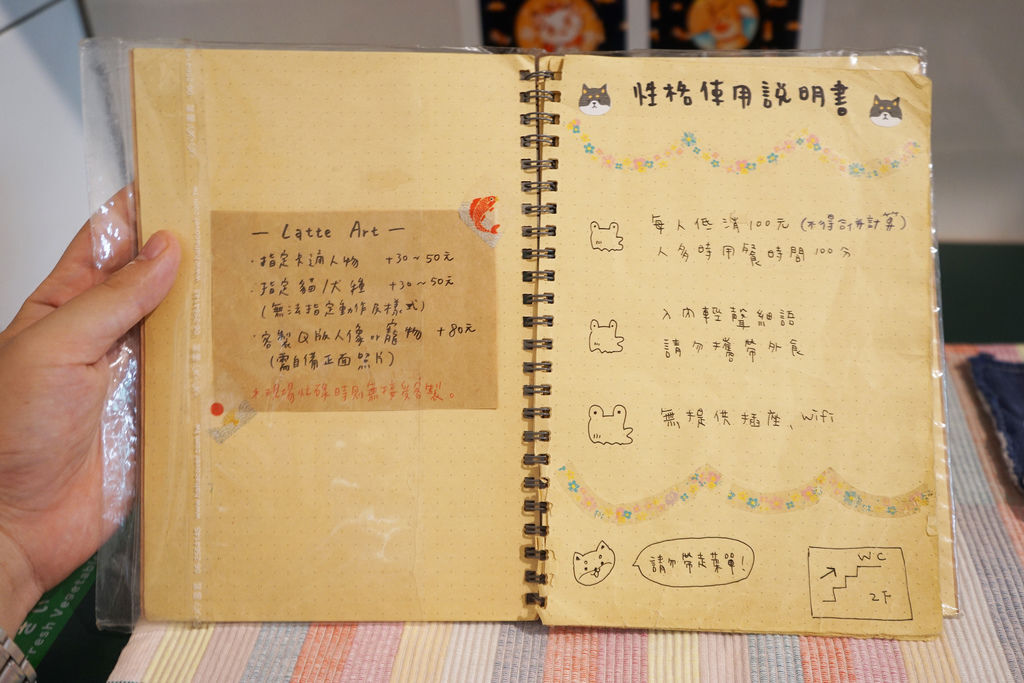 — Latte Art —
·指定卡通人物 +30~50元
·指定貓/犬種 +30~50元
(無法指定動作及樣式)
·客製Q版人像or寵物 +80元
(需自備正面照片)
*現場忙碌時則無接受客製。
性格使用說明書
每人低消100元(不得合併計算)
人多時用餐時間100分
入內輕聲細語
請勿攜帶外食
無提供插座、wifi
請勿帶走菜單!
WC
2F
resh Vegetabl